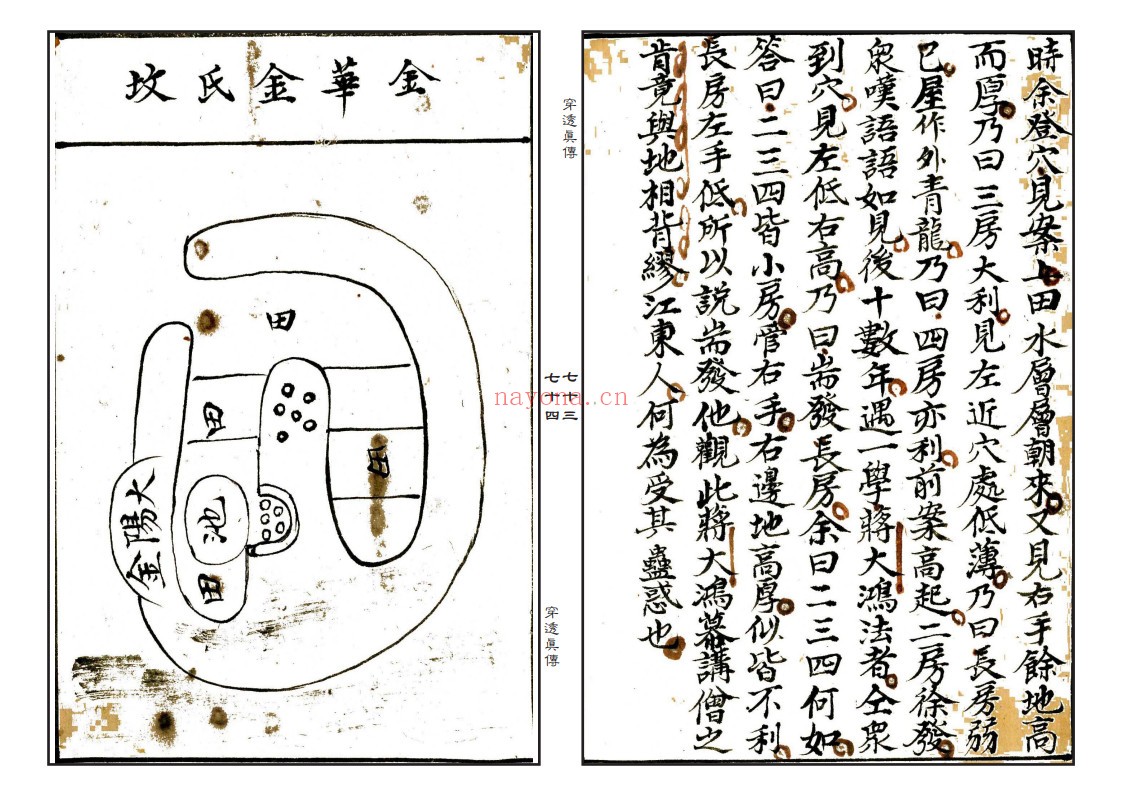 時余登穴見案上田水層層朝來又見右手餘地高
而厚乃曰三房大利見左近穴處低薄乃曰長房弱
已屋作外青龍乃曰四房亦利前案高起二房徐發
衆嘆語語如見後十數年遇一學蔣大鴻法者仝衆
到穴見左低右高乃曰耑發長房余曰二三四何如
答曰二三四皆小房管右手右邊地高厚似皆不利
長房左手低所以說耑發他觀此蔣大鴻幕講僧之
肯竟與地相背繆江東人何為受其蠱惑也
穿透眞傳
七十三
七十四
穿透眞傳
nayona.cn
金華金氏坟
田
田
田
池
田
太陽金